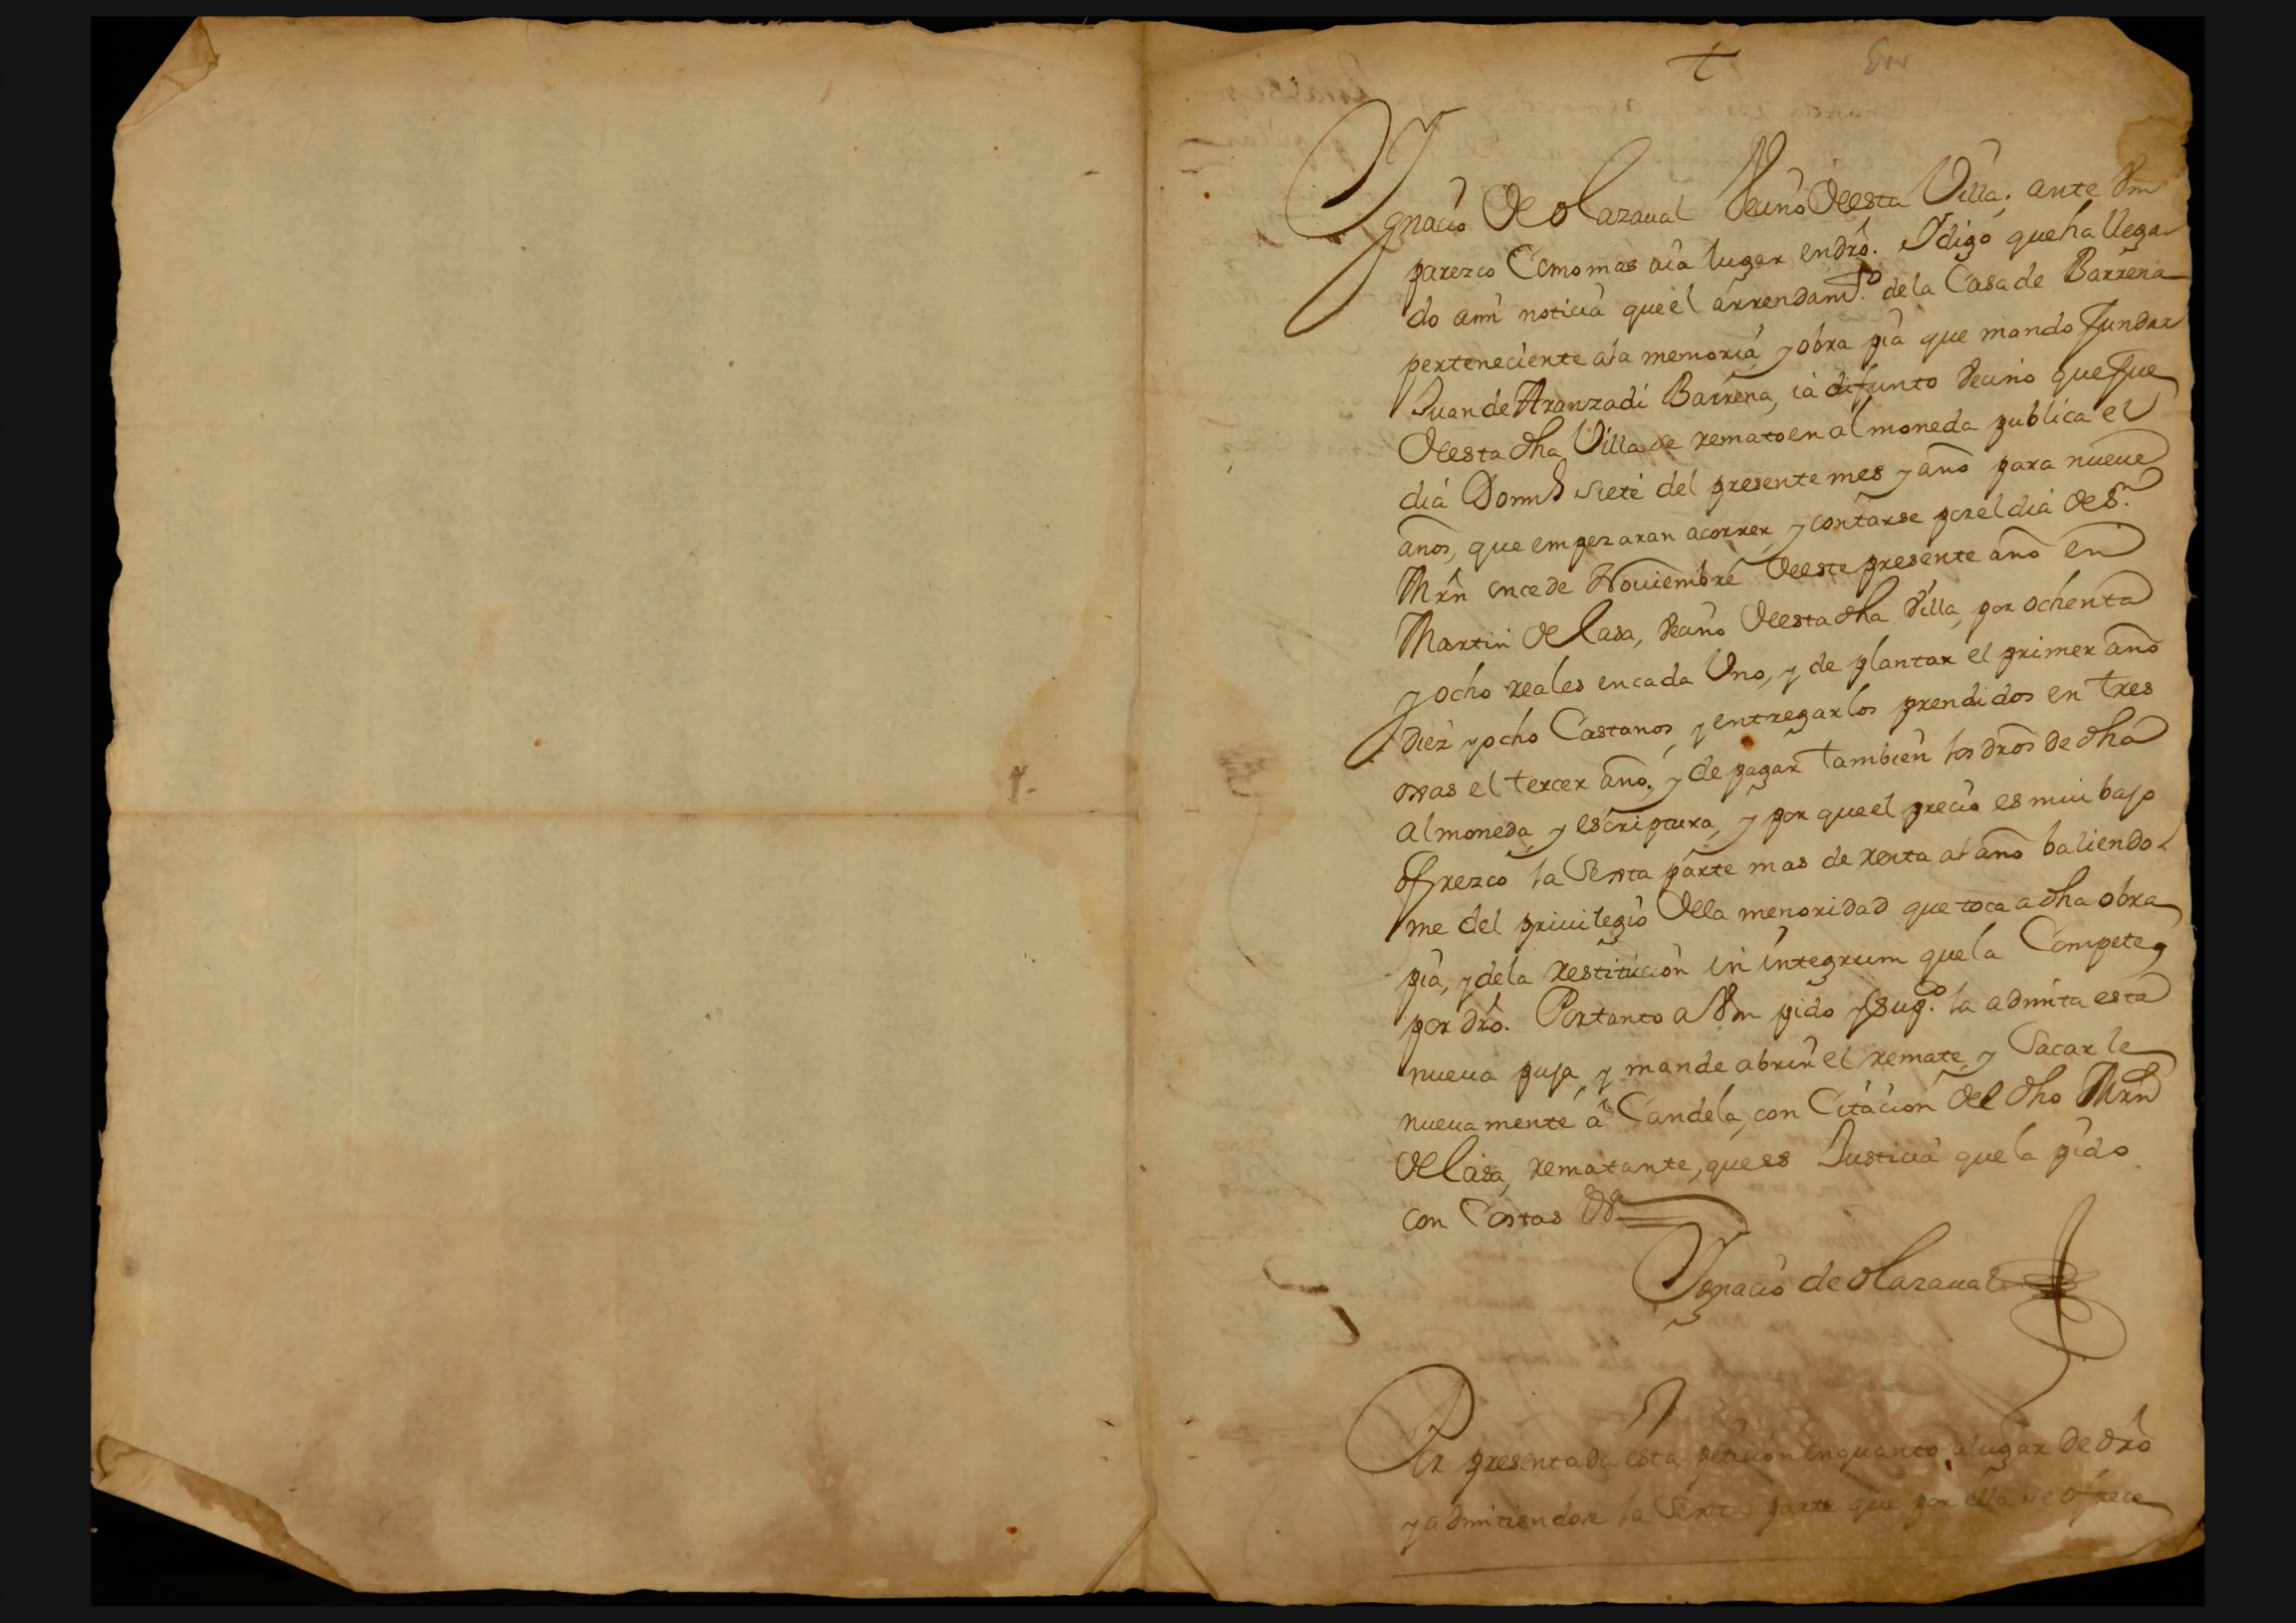 +
Ygnacio de olazaual Vecino deesta Villa; ante Vm
parezco Como mas aia lugar endrō. Y digo queha llega
do ami noticia queel arrendamto. dela Casa de Barrena
perteneciente ala memoria y obra pia que mando fundar
Juan de Aranzadi Barrena, ia difunto Vecino que fue
deesta dha Villa se remato en almoneda publica el
dia Domo siete del presente mes y año para nueue
años, que empezaran acorrer, y contarse por el dia de Sn.
Mrn once de Nouiembre deeste presente año en
Martin de lasa, Vecino deesta dha Villa, por ochenta
y ocho reales en cada Vno, y de plantar el primer año
diez y ocho Castanos, y entregarlos prendidos en tres
oxas el tercer año, y de pagar tambien los dros de dha
almoneda, y escriptura, y por queel precio es mui bajo
ofrezco la Sexta parte mas de renta al año baliendo
me del priuilegio della menoridad que toca a dha obra
pia, y dela restitucion in integrum quela Compete
por drō. Portanto a Vm pido y supco. la admita esta
nueua puja, y mande abrir el remate, y Sacarle
nueuamente á Candela, con Citacion del dho Mrn
de lasa, rematante, que es Justicia que la pido
con Costas &a
Ygnacio de olazaual
Por presentada esta peticion enquanto alugar de drō
y admitiendose la Sexta parte que por ella se ofrece